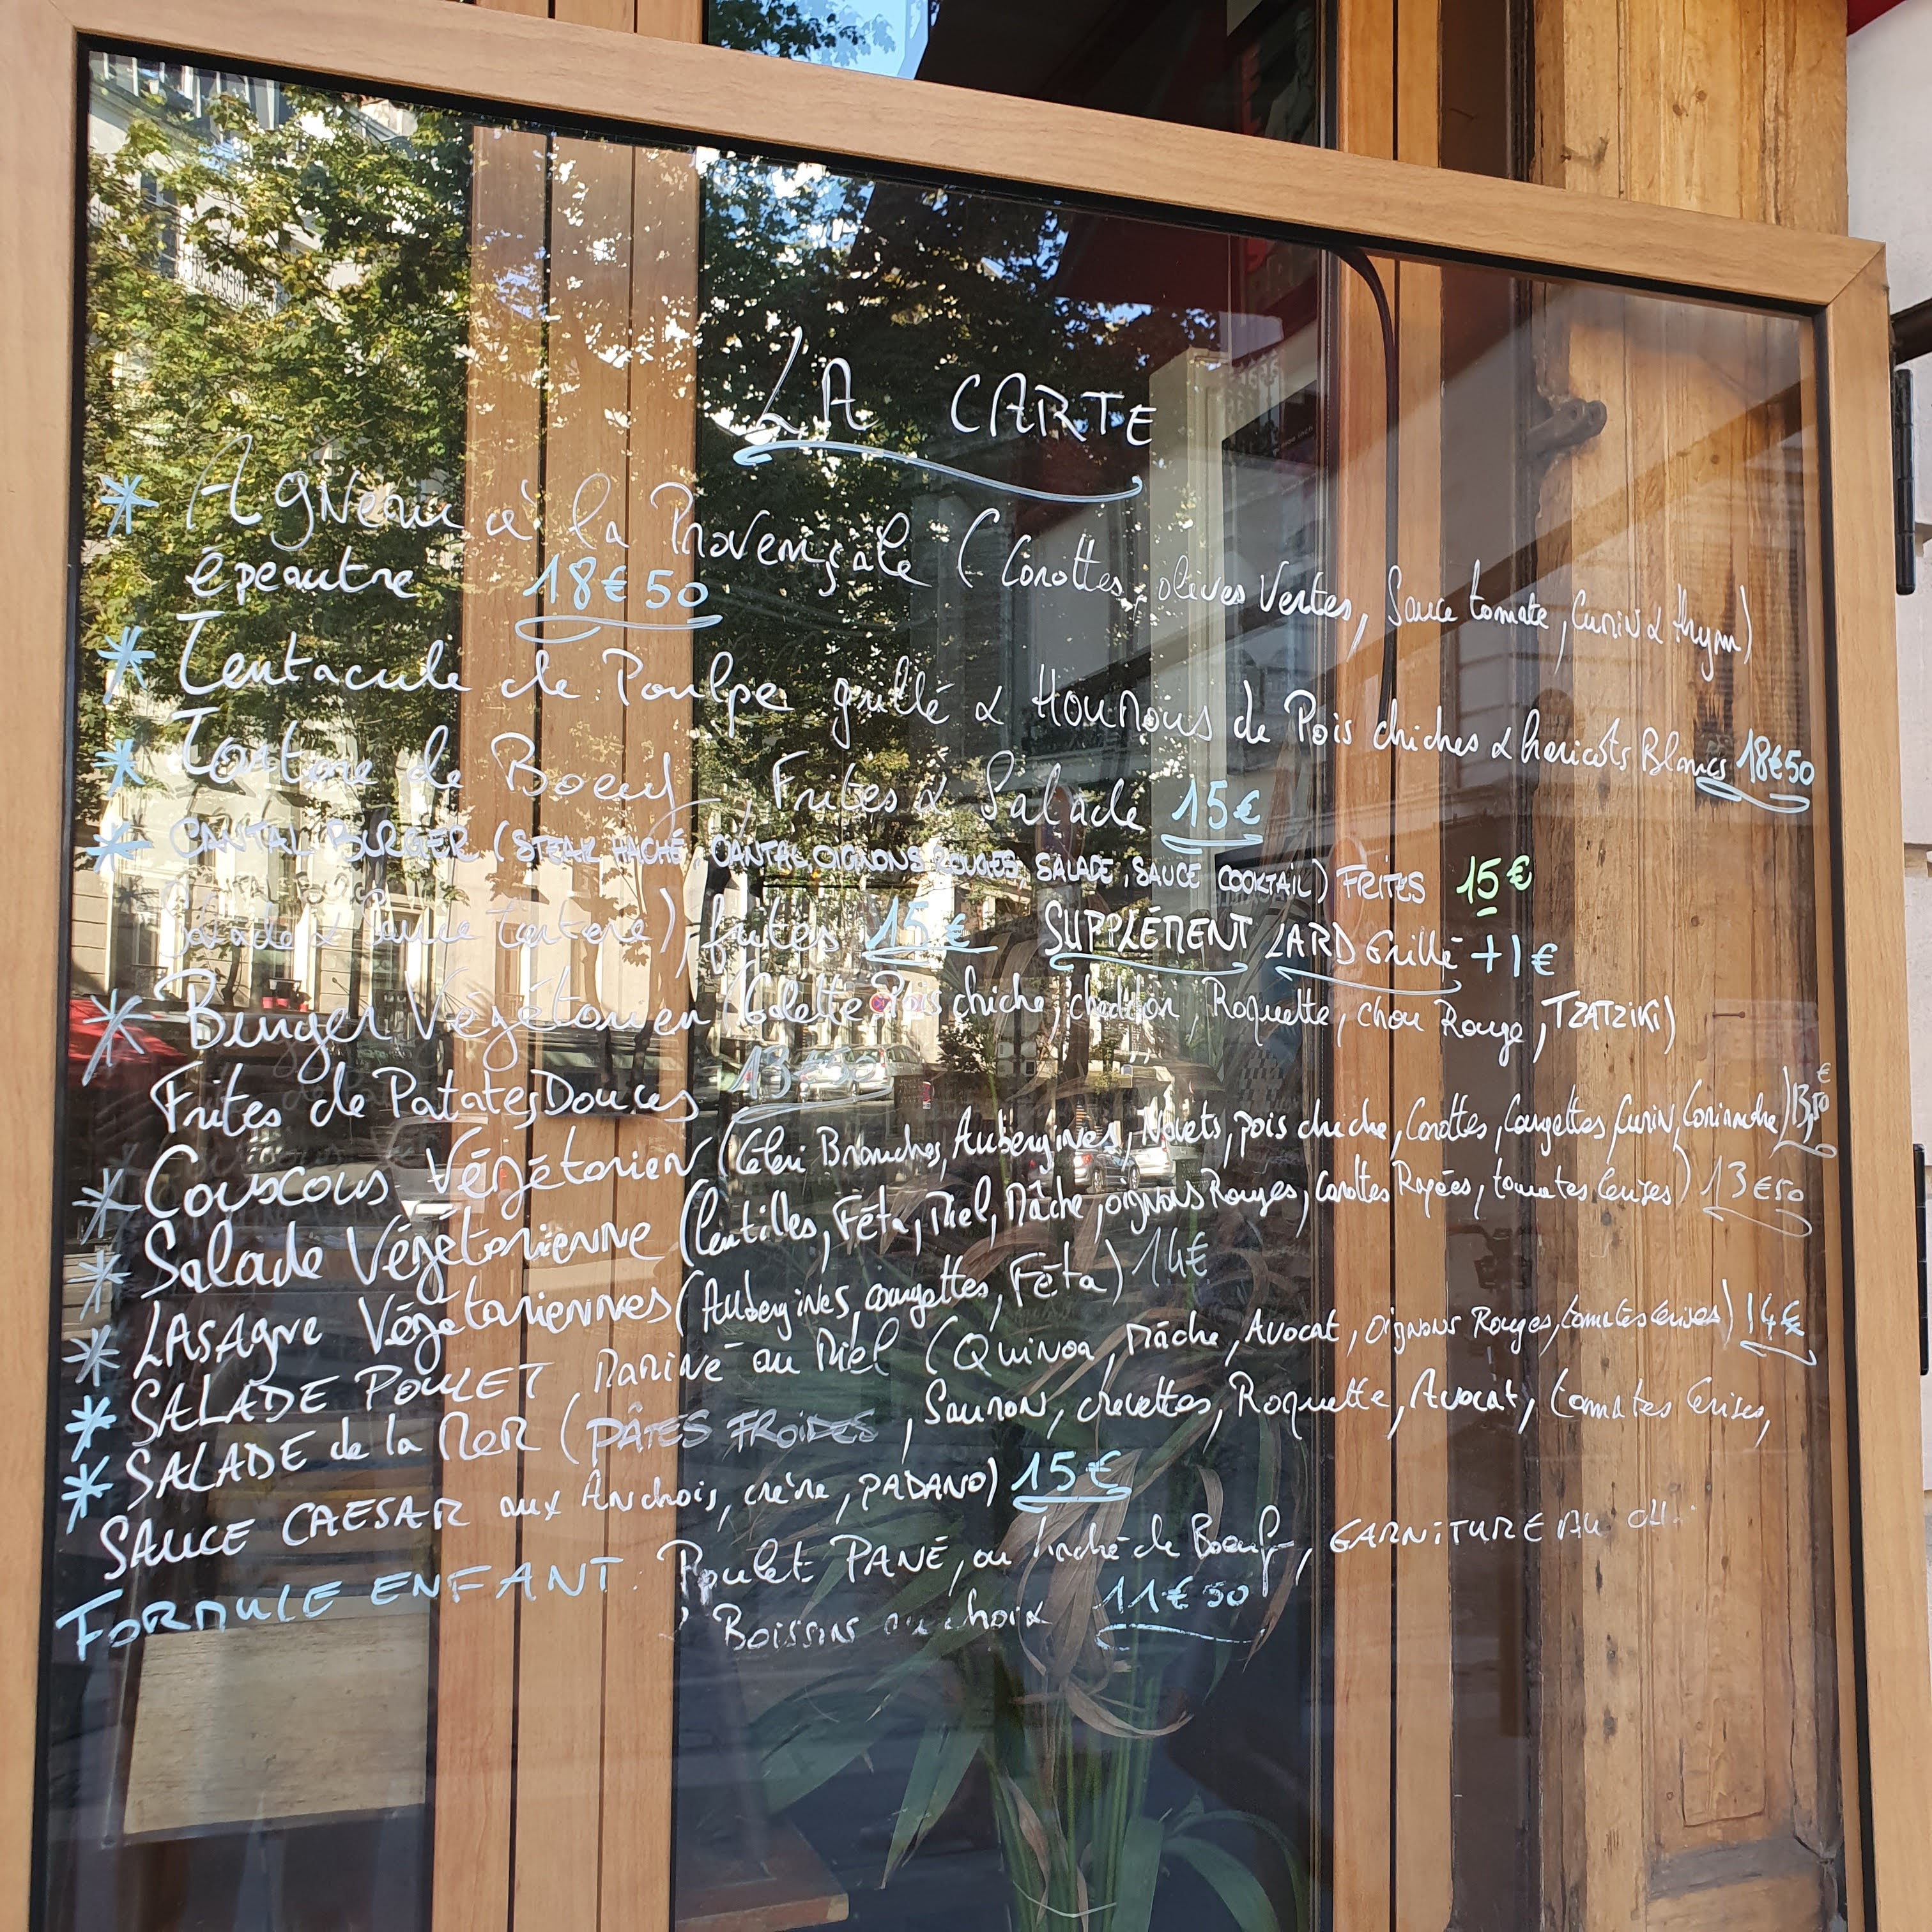 LA CARTE
* Agneau à la Provençale (Carottes, olives Vertes, Sauce tomate, Cumin & thym)
épeautre 18€50
* Tentacule de Poulpe grillé & Houmous de Pois chiches & haricots Blancs 18€50
* Tartare de Boeuf, Frites & Salade 15€
* CANTAL BURGER (STEAK HACHÉ, CANTAL, OIGNONS ROUGES, SALADE, SAUCE COCKTAIL) FRITES 15€
Salade & Sauce tartare), frites 15€ SUPPLÉMENT LARD Grillé +1€
* Burger Végétarien (Galette Pois chiche, cheddar, Roquette, chou Rouge, TZATZIKI)
Frites de Patates Douces 13
* Couscous Végétarien (Céleri Branches, Aubergines, Navets, pois chiche, Carottes, Courgettes, Cumin, Coriandre) 13,50€
* Salade Végétarienne (Lentilles, Féta, Miel, Mâche, oignons Rouges, Carottes Rapées, tomates Cerises) 13€50
* LASAgne Végétariennes (Aubergines, courgettes, Féta) 14€
* SALADE POULET Mariné au Miel (Quinoa, Mâche, Avocat, oignons Rouges, tomates Cerises) 14€
* SALADE de la MER (PÂTES FROIDES, Saumon, crevettes, Roquette, Avocat, tomates Cerises,
SAUCE CAESAR aux Anchois, crème, PADANO) 15€
FORMULE ENFANT: Poulet PANÉ, ou haché de Boeuf, GARNITURE AU
Boissons au choix 11€50